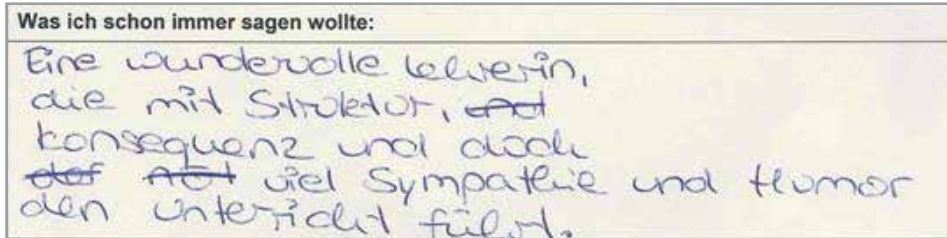 Was ich schon immer sagen wollte:
Eine wundervolle Lehrerin,
die mit Struktur, und
konsequenz und doch
der mit viel Sympathie und Humor
den Unterricht führt.